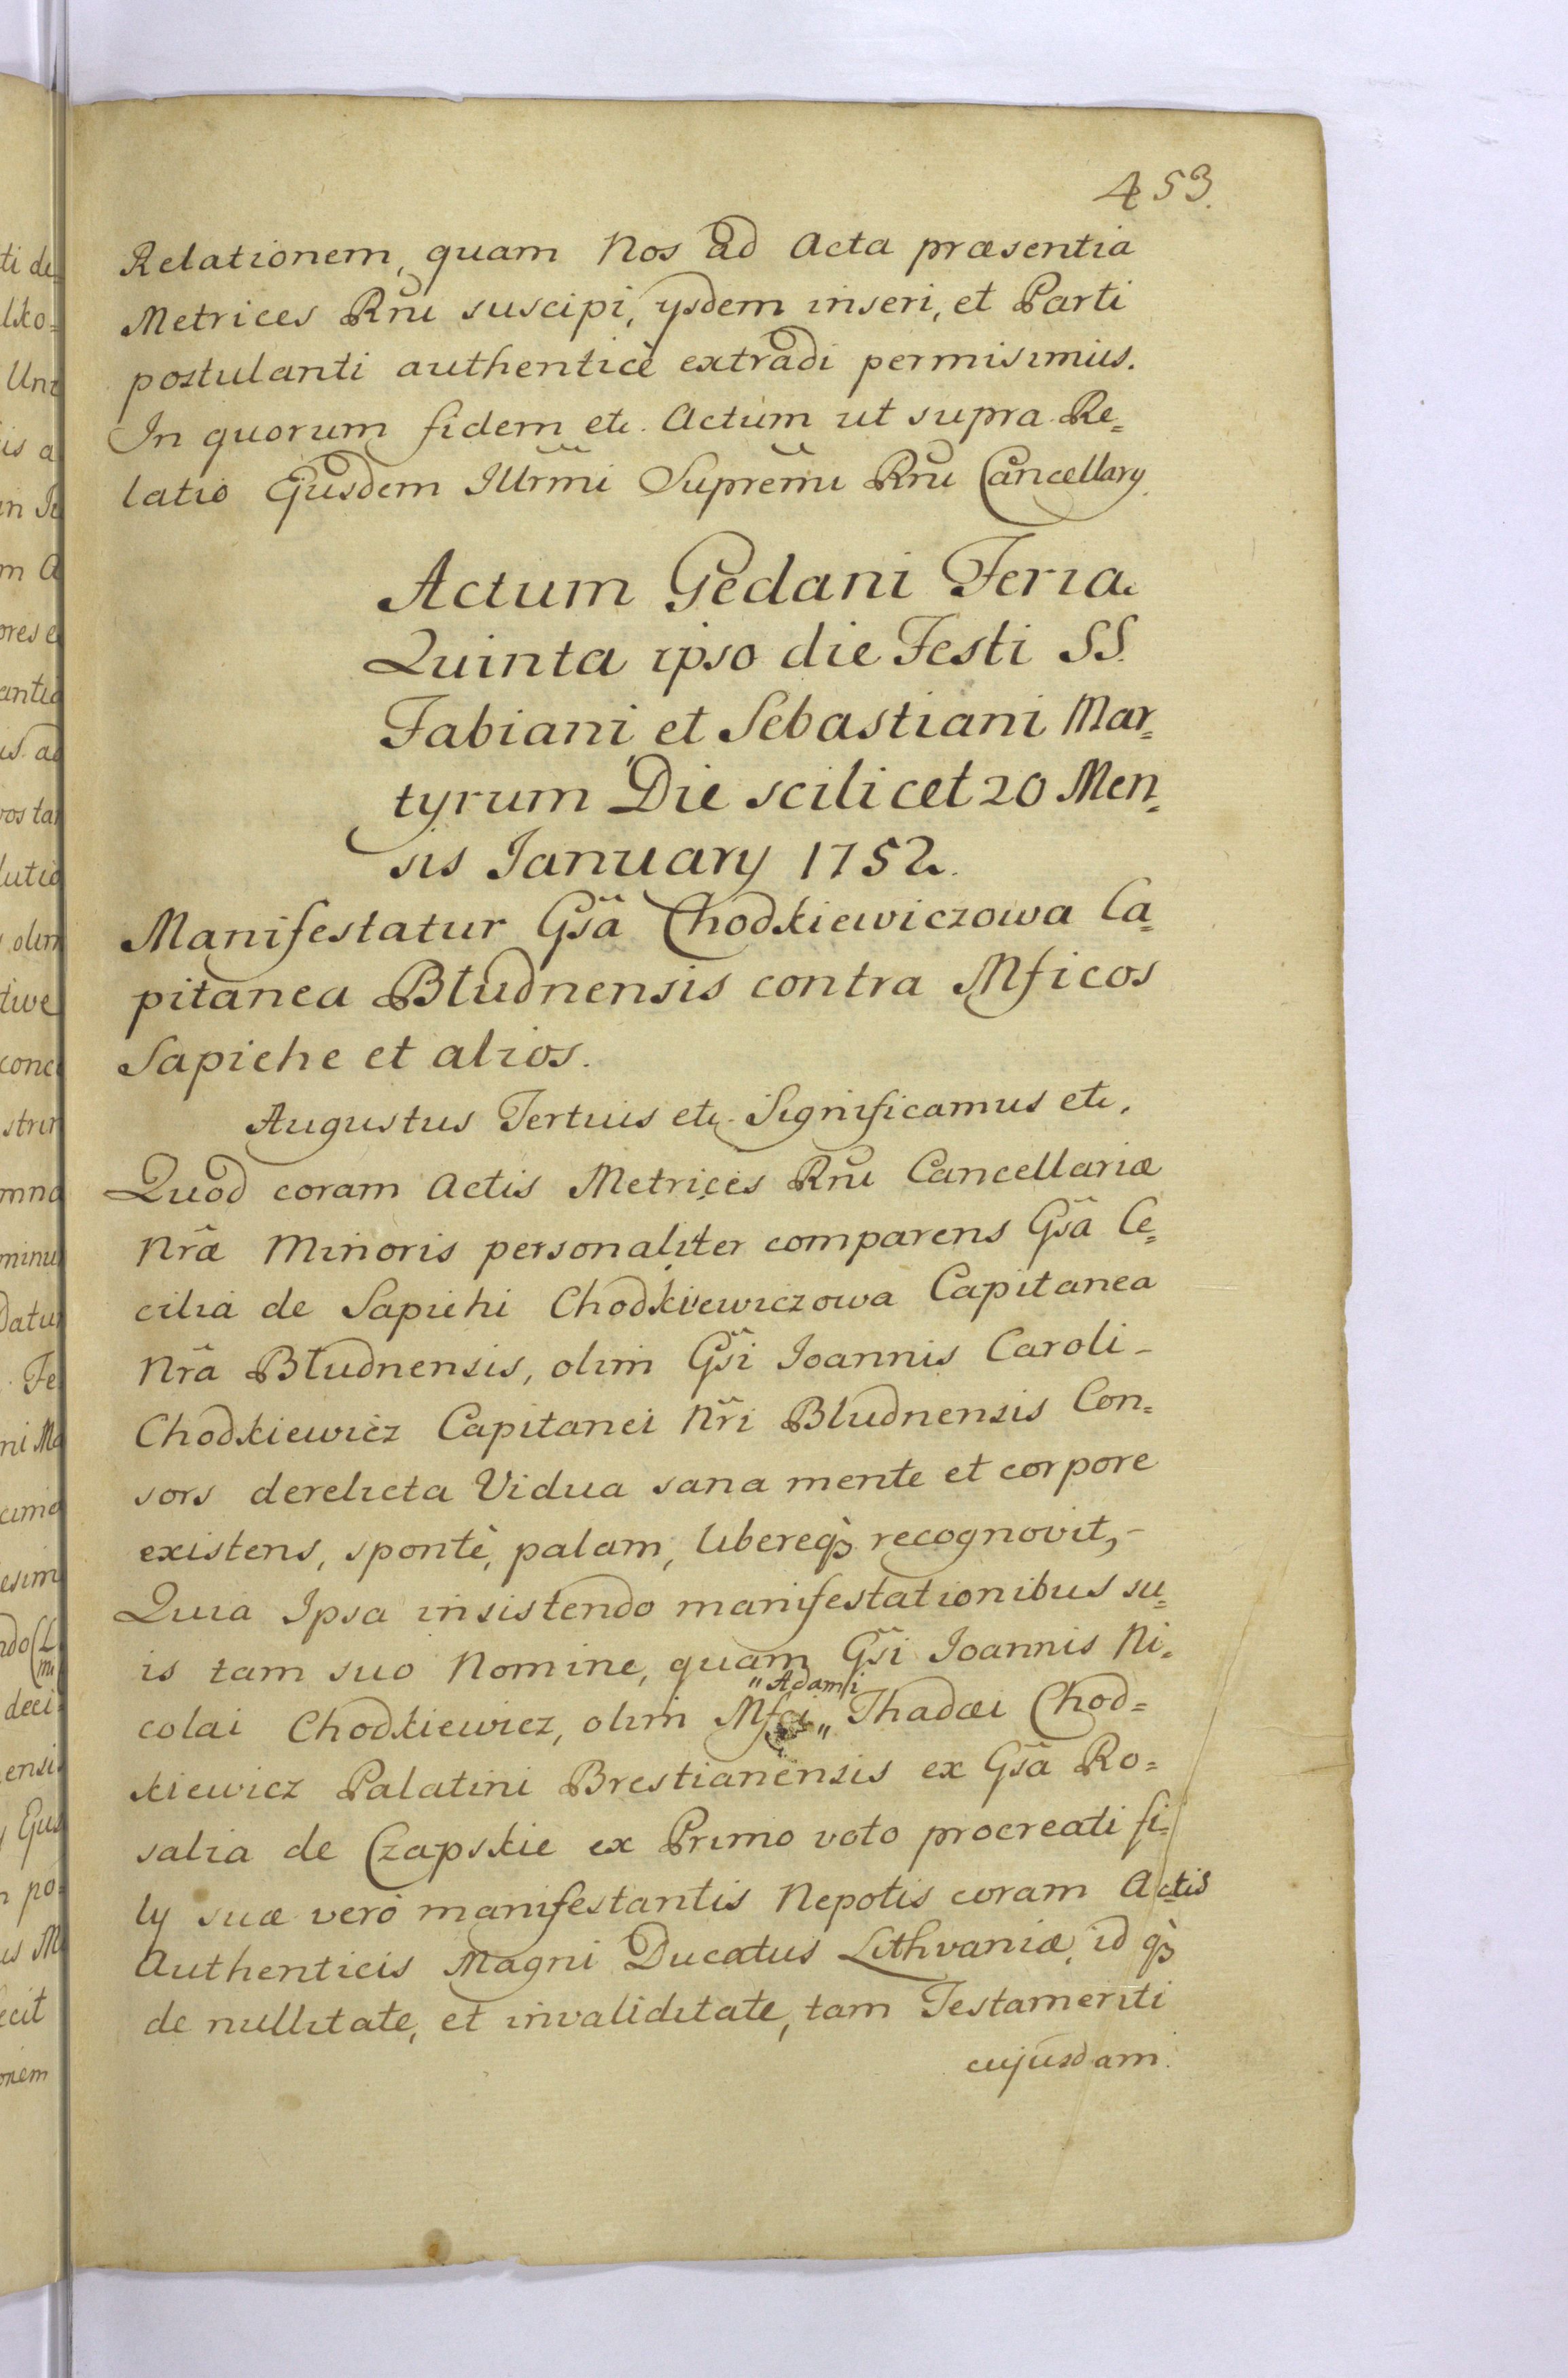 453.
Relationem, quam Nos ad Acta præsentia
Metrices Rñi suscipi, ysdem inseri, et Parti
postulanti authenticè extradi permisimus.
In quorum fidem etc. Actum ut supra Re=
latio Ejusdem Illrm̃i Suprem̃i Rñi Cancellary.
Actum Gedani Feria
Quinta ipso die Festi SS.
Fabiani et Sebastiani Mar=
tyrum Die scilicet 20 Men=
sis January 1752.
Manifestatur Gsã Chodkiewiczowa Ca=
pitanea Bludnensis contra Mficos
Sapiehe et alios.
Augustus Tertius etc. Significamus etc.
Quod coram Actis Metrices Rñi Cancellariæ
Nrãe Minoris personaliter comparens Gsã Ce=
cilia de Sapiehi Chodkiewiczowa Capitanea
Nrã Bludnensis, olim Gsĩ Joannis Caroli -
Chodkiewicz Capitanei Nrĩ Bludnensis Con=
sors derelicta Vidua sana mente et corpore
existens, spontè, palam, libereq̀3 recognovit, -
Quia Ipsa insistendo manifestationibus su=
is tam suo Nomine, quam Gsĩ Joannis Ni=
"Adami
colai Chodkiewicz, olim Mfci " Thadæi Chod=
kiewicz Palatini Brestianensis ex Gsã Ro=
salia de Czapskie ex Primo voto procreati fi=
ly suæ verò manifestantis Nepotis coram Actis
Authenticis Magni Ducatus Lithvaniæ, id q̀3
de nullitate, et invaliditate, tam Testamenti
cujusdam.